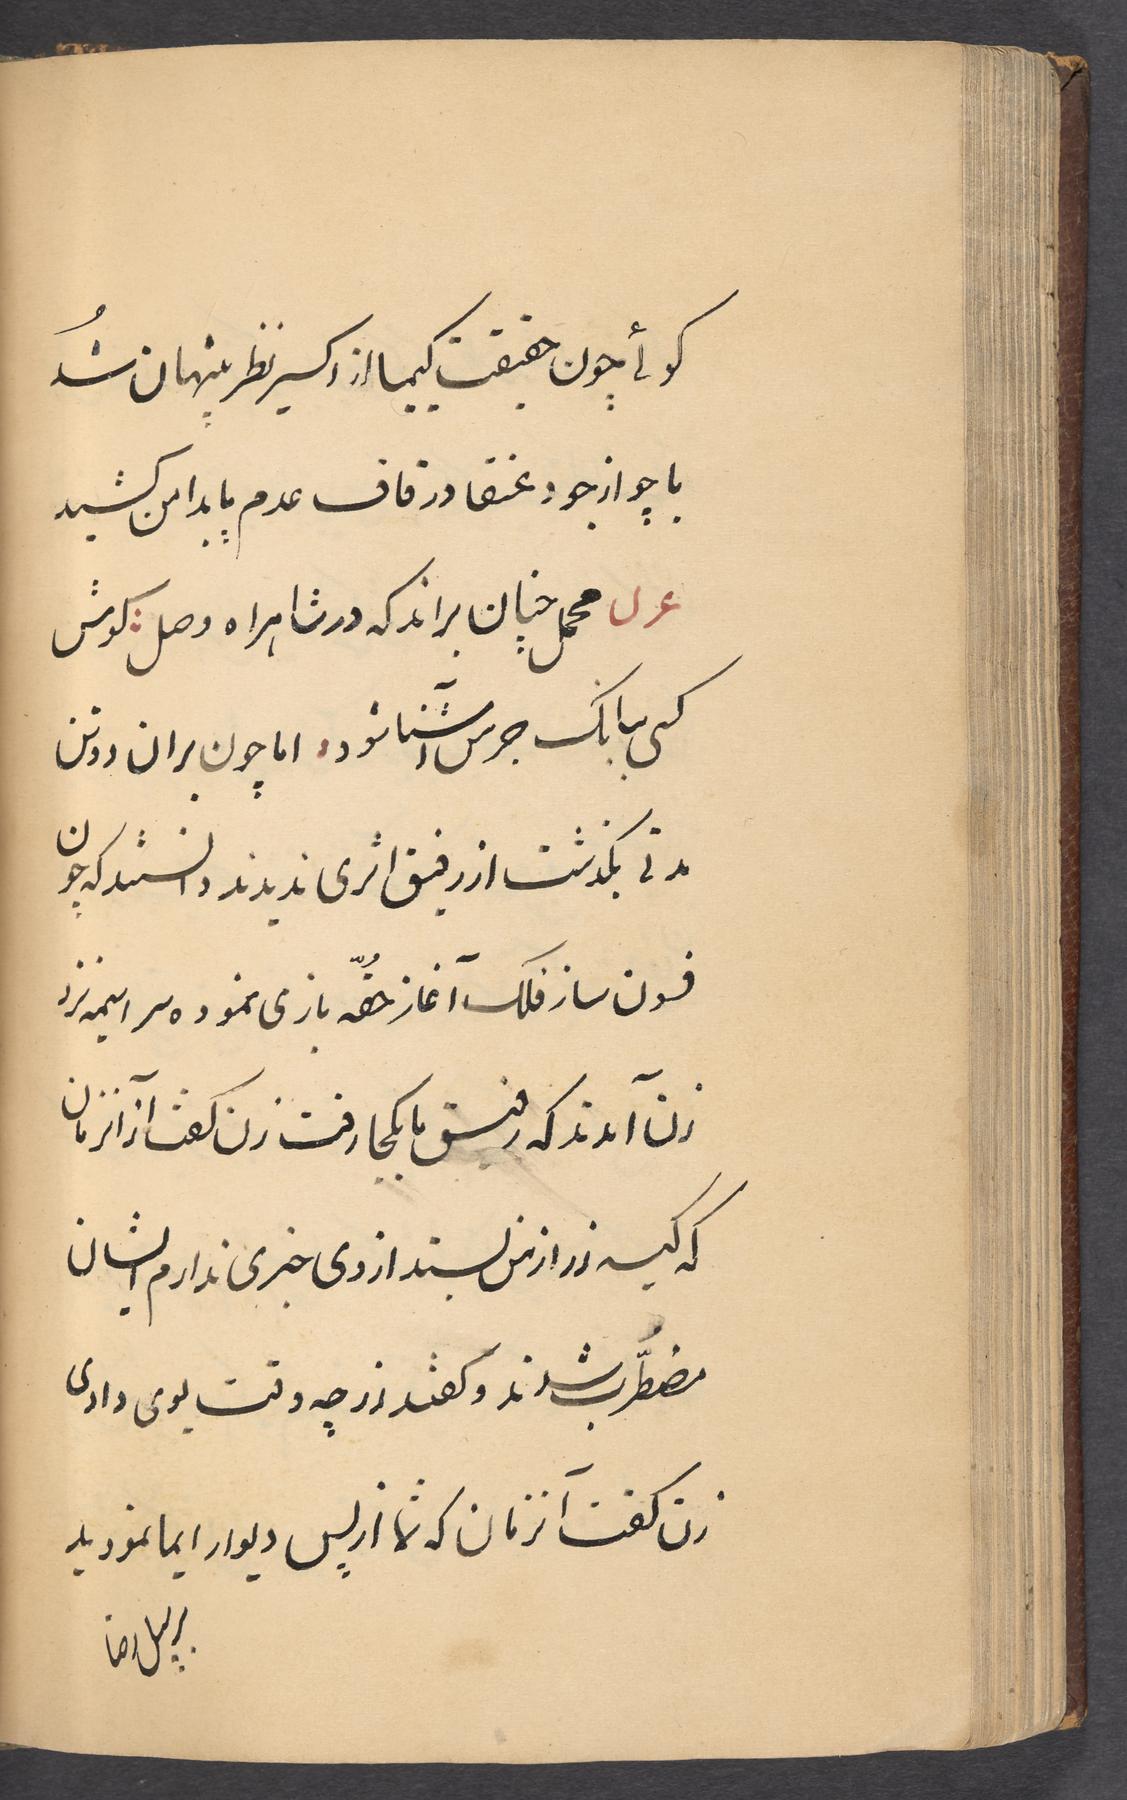 کوئے چون حقیقت کیمیا از اکسیر نظر پنهان شُد
یا چو از جود عنقا در قاف عدم پا بدامن کشید
ع ل محمل چنان براند که در شاهراه وصل : کوش
کسی ببانک جرس آشنا نشود اما چون بران دو تن
مدتے بکذشت از رفیق اثری ندیدند دانستند که چون
فسون ساز فلک آغاز حُقّه بازی نموده سراسیمه نزد
زن آمدند که رفیق ما بکجا رفت زن کفت از آنزمان
که کیسه زر از من بستد از وی خبری ندارم ایشان
مضطُرب شدند و کفتند زر چه وقت بوی دادی
زن کفت آنزمان که شما از پس دیوار ایما نمودید